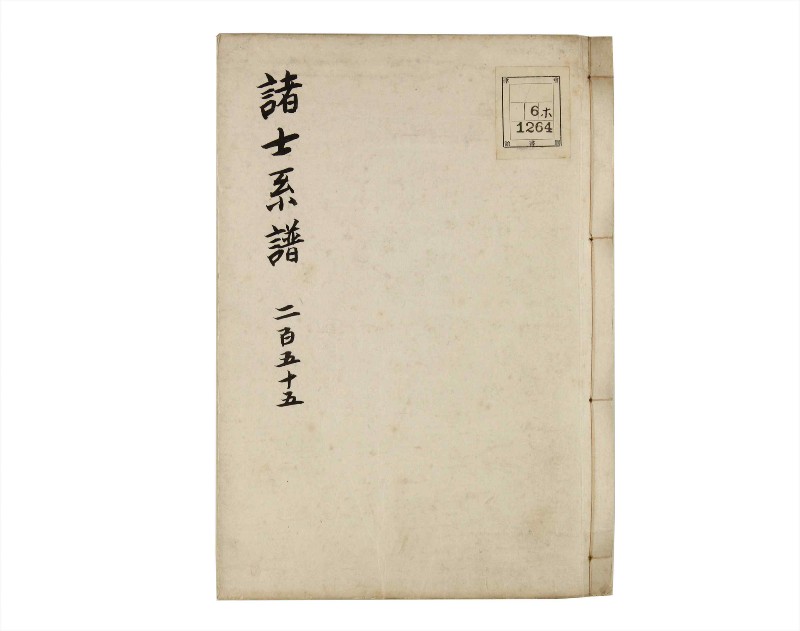 諸士系譜 二百五十五
6ホ
1264